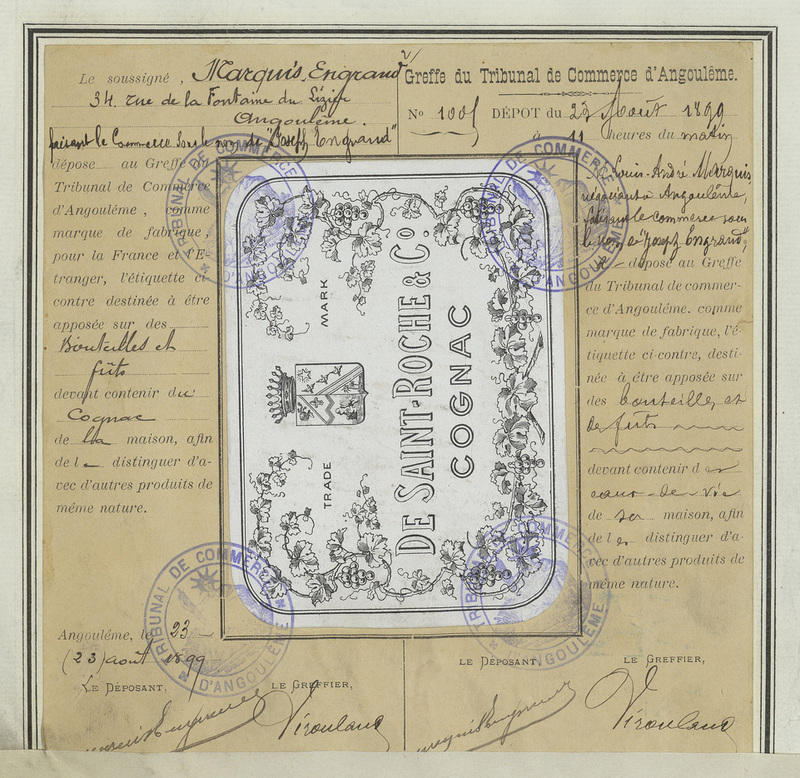 Le soussigné, Marquis, Engrand
34, rue de la Fontaine du Lizier
Angoulême.
faisant le Commerce sous le nom de "Joseph Engrand"
dépose au Greffe du
Tribunal de Commerce
d'Angoulême, comme
marque de fabrique,
pour la France et l'É-
tranger, l'étiquette ci-
contre destinée à être
apposée sur des
Bouteilles et
fûts
devant contenir du
Cognac
de la maison, afin
de le distinguer d'a-
vec d'autres produits de
même nature.
Angoulême, le 23
(23) août 1899
LE DÉPOSANT,
LE GREFFIER,
Greffe du Tribunal de Commerce d'Angoulême.
No 1005 DÉPOT du 23 Août 1899
à 11 heures du matin
Louis-André Marquis,
négociant à Angoulême,
faisant le commerce sous
le nom de "Joseph Engrand",
dépose au Greffe
du Tribunal de commer-
ce d'Angoulême. comme
marque de fabrique, l'é-
tiquette ci-contre, desti-
née à être apposée sur
des bouteilles et
de fûts
devant contenir des
eaux-de-vie
de sa maison, afin
de les distinguer d'a-
vec d'autres produits de
même nature.
LE DÉPOSANT,
LE GREFFIER,
TRADE MARK
DE SAINT-ROCHE & Co.
COGNAC
TRIBUNAL DE COMMERCE
D'ANGOULEME
TRIBUNAL DE COMMERCE
D'ANGOULEME
TRIBUNAL DE COMMERCE
D'ANGOULEME
TRIBUNAL DE COMMERCE
D'ANGOULEME